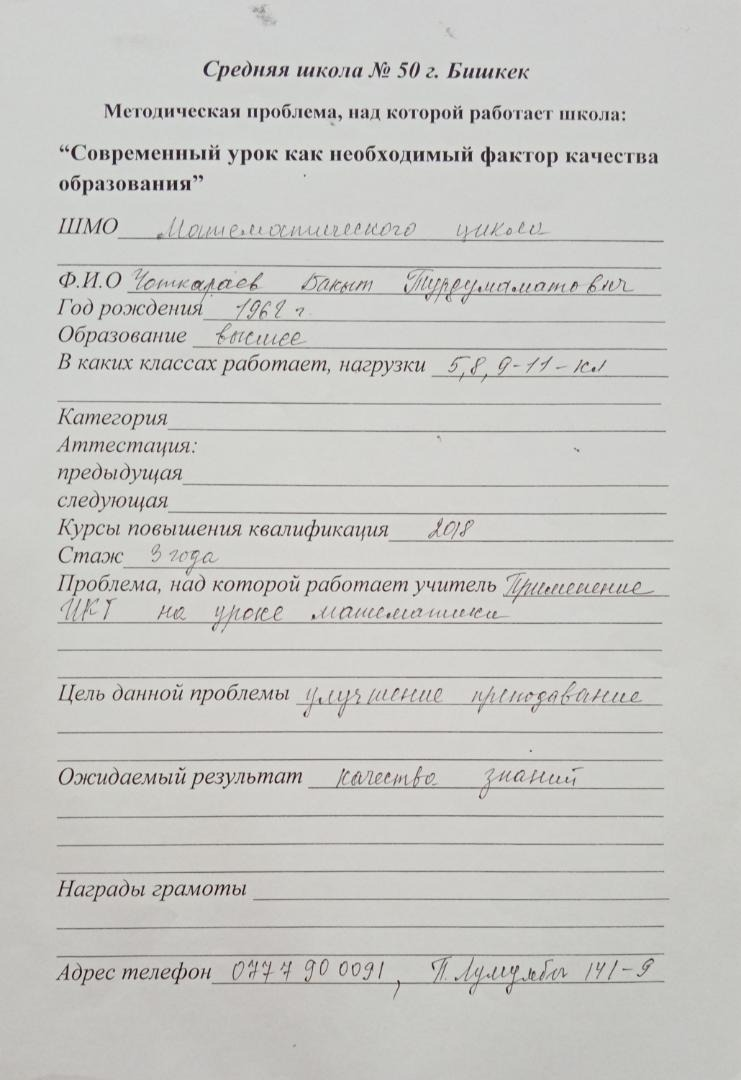 Средняя школа № 50 г. Бишкек
Методическая проблема, над которой работает школа:
“Современный урок как необходимый фактор качества
образования”
ШМО Математического цикла
Ф.И.О Чоткараев Бакыт Турдумаматович
Год рождения 1962 г.
Образование высшее
В каких классах работает, нагрузки 5,8,9-11-кл
Категория
Аттестация:
предыдущая
следующая
Курсы повышения квалификация 2018
Стаж 3 года
Проблема, над которой работает учитель Применение
ИКТ на уроке математики
Цель данной проблемы улучшение преподавание
Ожидаемый результат качество знаний
Награды грамоты
Адрес телефон 0777 90 0091, П. Лумумбы 141-9